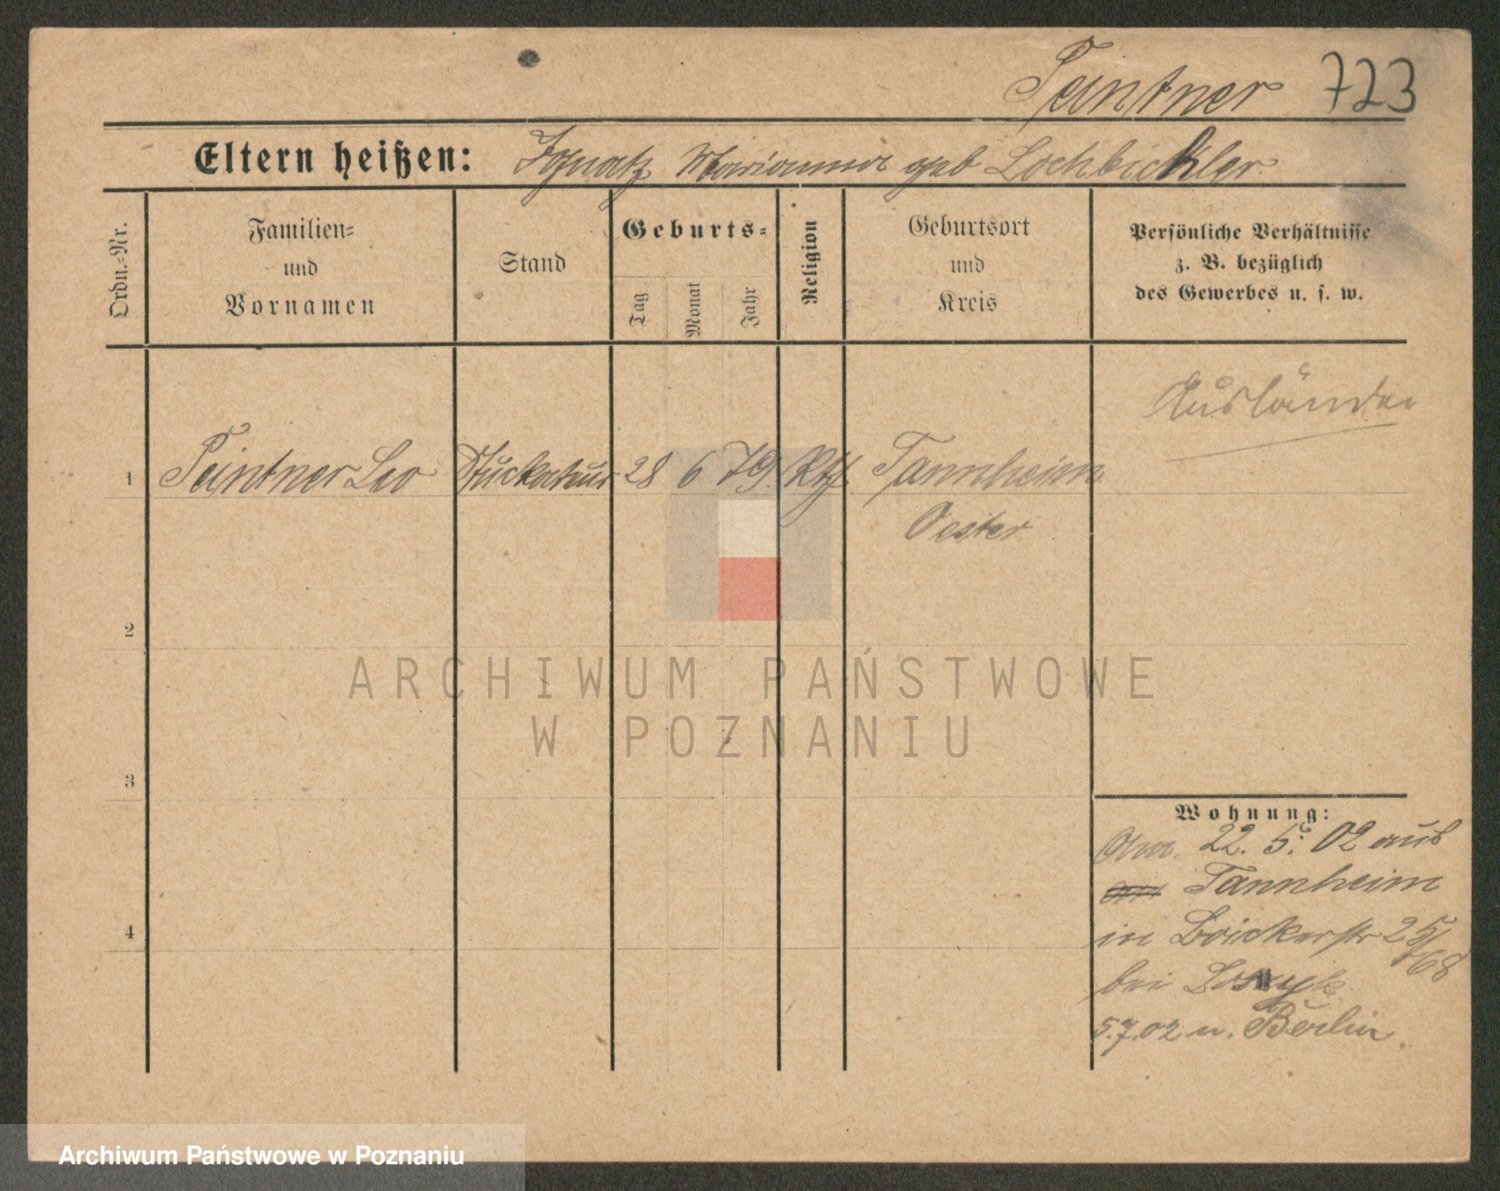 Peintner 723
Eltern heißen: Ignatz Marianna geb Lochbickler
Ordn.-Nr.
Familien-
und
Vornamen
Stand
Geburts-
Tag
Monat
Jahr
Religion
Geburtsort
und
Kreis
Persönliche Verhältnisse
z. B. bezüglich
des Gewerbes u. s. w.
Ausländer
1 Peintner Leo Stuckateur 28 6 79 Kth Tannheim
Oester
2
ARCHIWUM PAŃSTWOWE
W POZNANIU
3
Wohnung:
22. 5. 02 aus
Tannheim
in Bäckerstr 25/68
bei
4
5.7.02 n. Berlin.
Archiwum Państwowe w Poznaniu